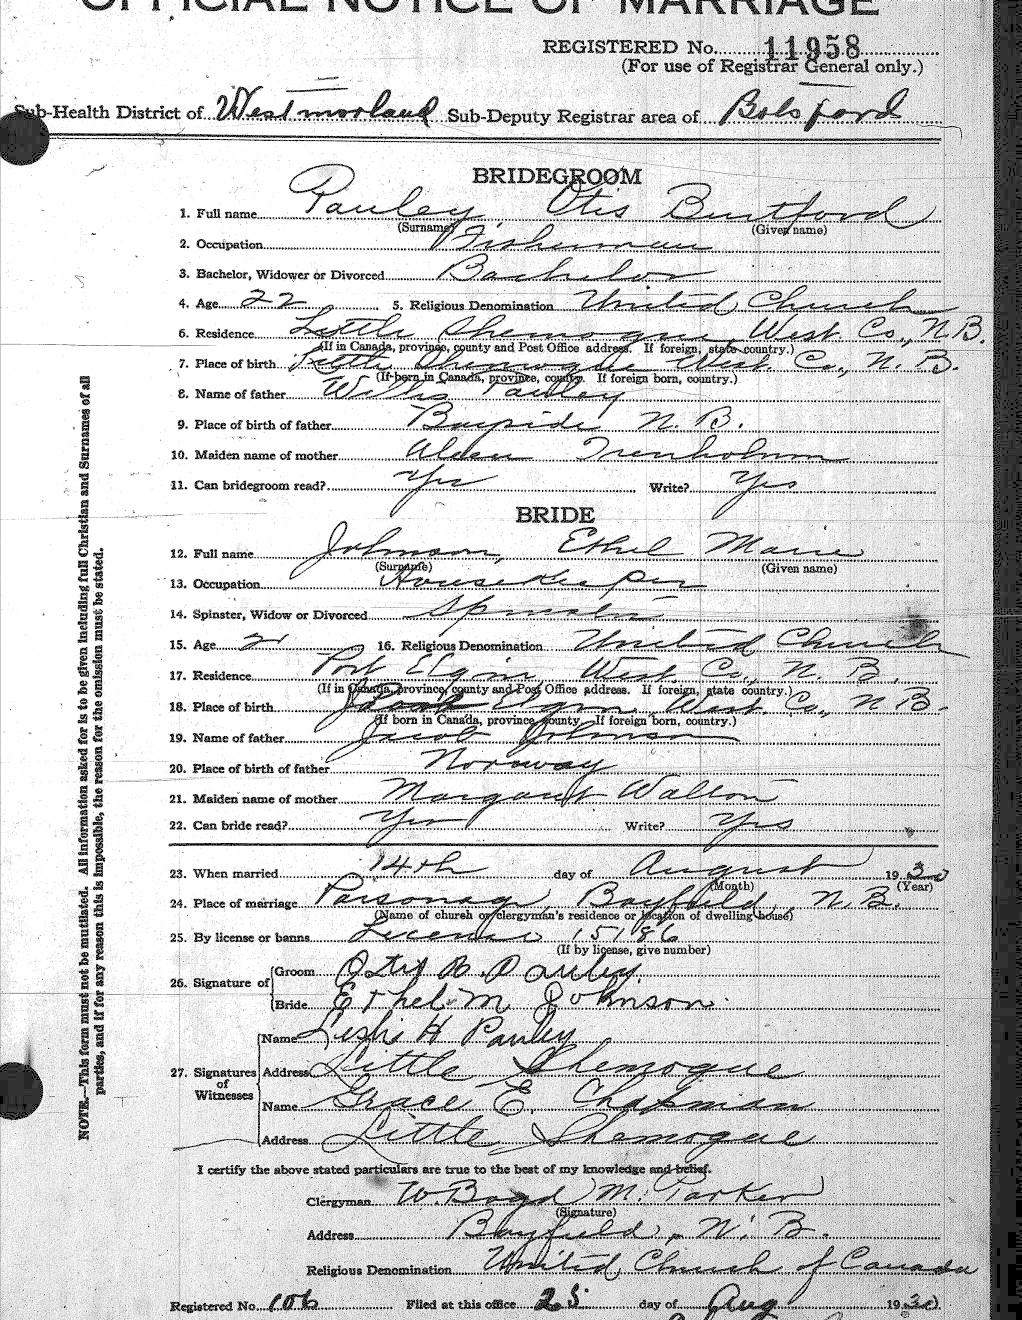 OFFICIAL NOTICE OF MARRIAGE
REGISTERED No. 11958
(For use of Registrar General only.)
Sub-Health District of Westmorland Sub-Deputy Registrar area of Botsford
BRIDEGROOM
1. Full name Pauley, Otis Burtford
(Surname) (Given name)
2. Occupation Fisherman
3. Bachelor, Widower or Divorced Bachelor
4. Age 22 5. Religious Denomination United Church
6. Residence Little Shemogue, West. Co., N.B.
(If in Canada, province, county and Post Office address. If foreign, state country.)
7. Place of birth Little Shemogue West. Co., N. B.
(If born in Canada, province, county. If foreign born, country.)
8. Name of father Willis Pauley
9. Place of birth of father Bayside N. B.
10. Maiden name of mother Trenholm
11. Can bridegroom read? Yes Write? Yes
BRIDE
12. Full name Johnson, Ethel Marie
(Surname) (Given name)
13. Occupation Housekeeper
14. Spinster, Widow or Divorced Spinster
15. Age 16. Religious Denomination United Church
17. Residence Port Elgin West. Co., N. B.
(If in Canada, province, county and Post Office address. If foreign, state country.)
18. Place of birth Elgin, West. Co., N B.
(If born in Canada, province county. If foreign born, country.)
19. Name of father Jacob Johnson
20. Place of birth of father Norway
21. Maiden name of mother Margaret Walton
22. Can bride read? Yes Write? Yes
23. When married 14th day of August 1930
(Month) (Year)
24. Place of marriage Parsonage, Bayfield, N. B.
(Name of church or clergyman's residence or location of dwelling house)
25. By license or banns License 15186
(If by license, give number)
26. Signature of Groom Otis B. Pauley
Bride Ethel M. Johnson
27. Signatures of Witnesses Name Leslie H Pauley
Address Little Shemogue
Name Grace E. Chapman
Address Little Shemogue
I certify the above stated particulars are true to the best of my knowledge and belief.
Clergyman W. Boyd M. Parker
(Signature)
Address Bayfield, N. B.
Religious Denomination United Church of Canada
Registered No. 106 Filed at this office 25 day of Aug 1930
NOTE.—This form must not be mutilated. All information asked for is to be given including full Christian and Surnames of all
parties, and if for any reason this is impossible, the reason for the omission must be stated.